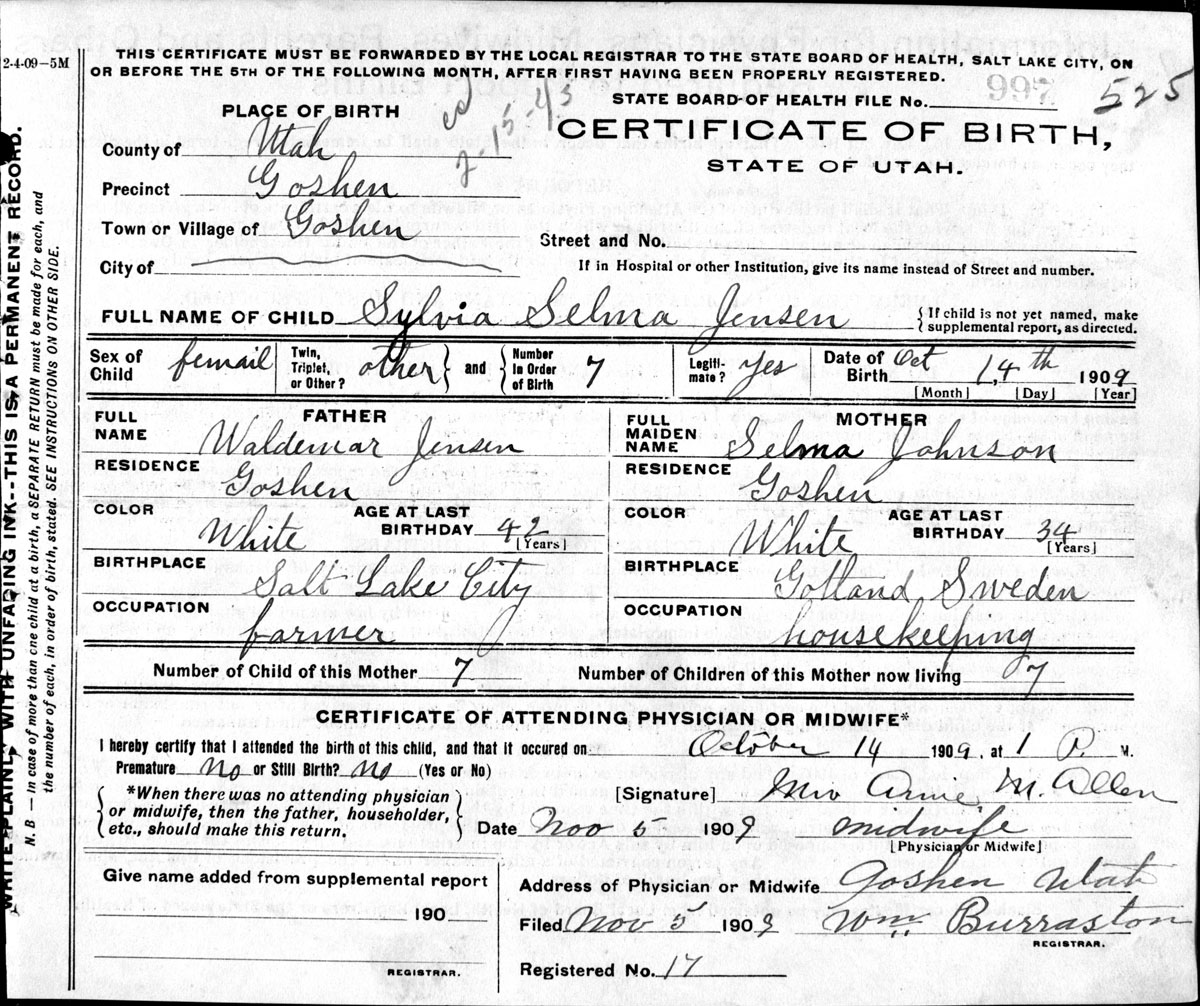 2-4-09-5M
THIS CERTIFICATE MUST BE FORWARDED BY THE LOCAL REGISTRAR TO THE STATE BOARD OF HEALTH, SALT LAKE CITY, ON
OR BEFORE THE 5TH OF THE FOLLOWING MONTH, AFTER FIRST HAVING BEEN PROPERLY REGISTERED.
STATE BOARD OF HEALTH FILE No. 997 525
PLACE OF BIRTH
2-15-43
CERTIFICATE OF BIRTH,
STATE OF UTAH.
County of Utah
Precinct Goshen
Town or Village of Goshen
Street and No.
City of
If in Hospital or other Institution, give its name instead of Street and number.
FULL NAME OF CHILD Sylvia Selma Jensen
{If child is not yet named, make
supplemental report, as directed.
Sex of Child femail Twin, Triplet, or Other? other } and { Number In Order of Birth 7 Legiti-mate? Yes Date of Birth Oct 14th 1909
[Month] [Day] [Year]
FATHER
FULL NAME Waldemar Jensen
RESIDENCE Goshen
COLOR White AGE AT LAST BIRTHDAY 42 [Years]
BIRTHPLACE Salt Lake City
OCCUPATION farmer
MOTHER
FULL MAIDEN NAME Selma Johnson
RESIDENCE Goshen
COLOR White AGE AT LAST BIRTHDAY 34 [Years]
BIRTHPLACE Gotland, Sweden
OCCUPATION housekeeping
Number of Child of this Mother 7 Number of Children of this Mother now living 7
CERTIFICATE OF ATTENDING PHYSICIAN OR MIDWIFE*
I hereby certify that I attended the birth of this child, and that it occured on October 14 1909, at 1 P. M.
Premature no or Still Birth? no (Yes or No)
*When there was no attending physician
or midwife, then the father, householder,
etc., should make this return.
[Signature] M. Allen
Date Nov 5 1909 midwife
[Physician or Midwife]
Give name added from supplemental report
190
REGISTRAR.
Address of Physician or Midwife Goshen Utah
Filed Nov 5 1909 Wm Burraston
REGISTRAR.
Registered No. 17
WRITE PLAINLY WITH UNFADING INK--THIS IS A PERMANENT RECORD.
N. B — In case of more than one child at a birth, a SEPARATE RETURN must be made for each, and
the number of each, in order of birth, stated. SEE INSTRUCTIONS ON OTHER SIDE.